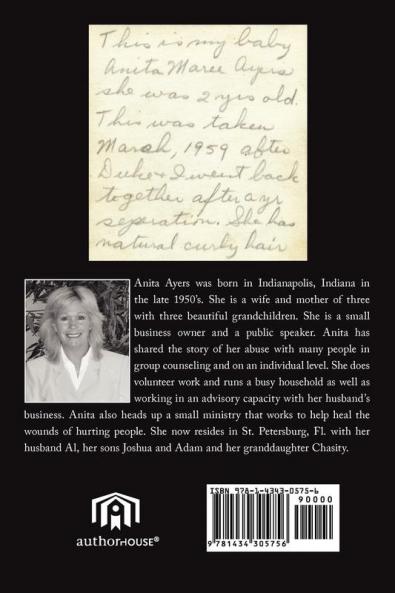 This is my baby
Anita Maree Ayers
she was 2 yrs old.
This was taken
March, 1959 after
Duke & I went back
together after a yr
seperation. She has
natural curly hair
Anita Ayers was born in Indianapolis, Indiana in
the late 1950's. She is a wife and mother of three
with three beautiful grandchildren. She is a small
business owner and a public speaker. Anita has
shared the story of her abuse with many people in
group counseling and on an individual level. She does
volunteer work and runs a busy household as well as
working in an advisory capacity with her husband's
business. Anita also heads up a small ministry that works to help heal the
wounds of hurting people. She now resides in St. Petersburg, Fl. with her
husband Al, her sons Joshua and Adam and her granddaughter Chasity.
authorHOUSE®
ISBN 978-1-4343-0575-6
90000
9781434305756